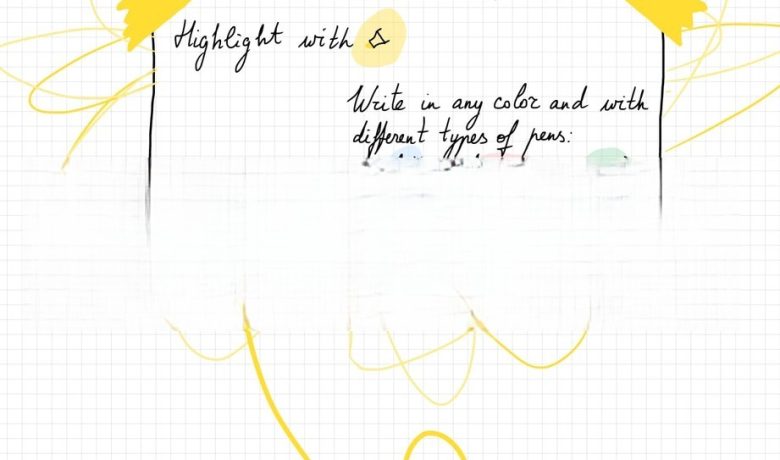 Highlight with
Write in any color and with
different types of pens: